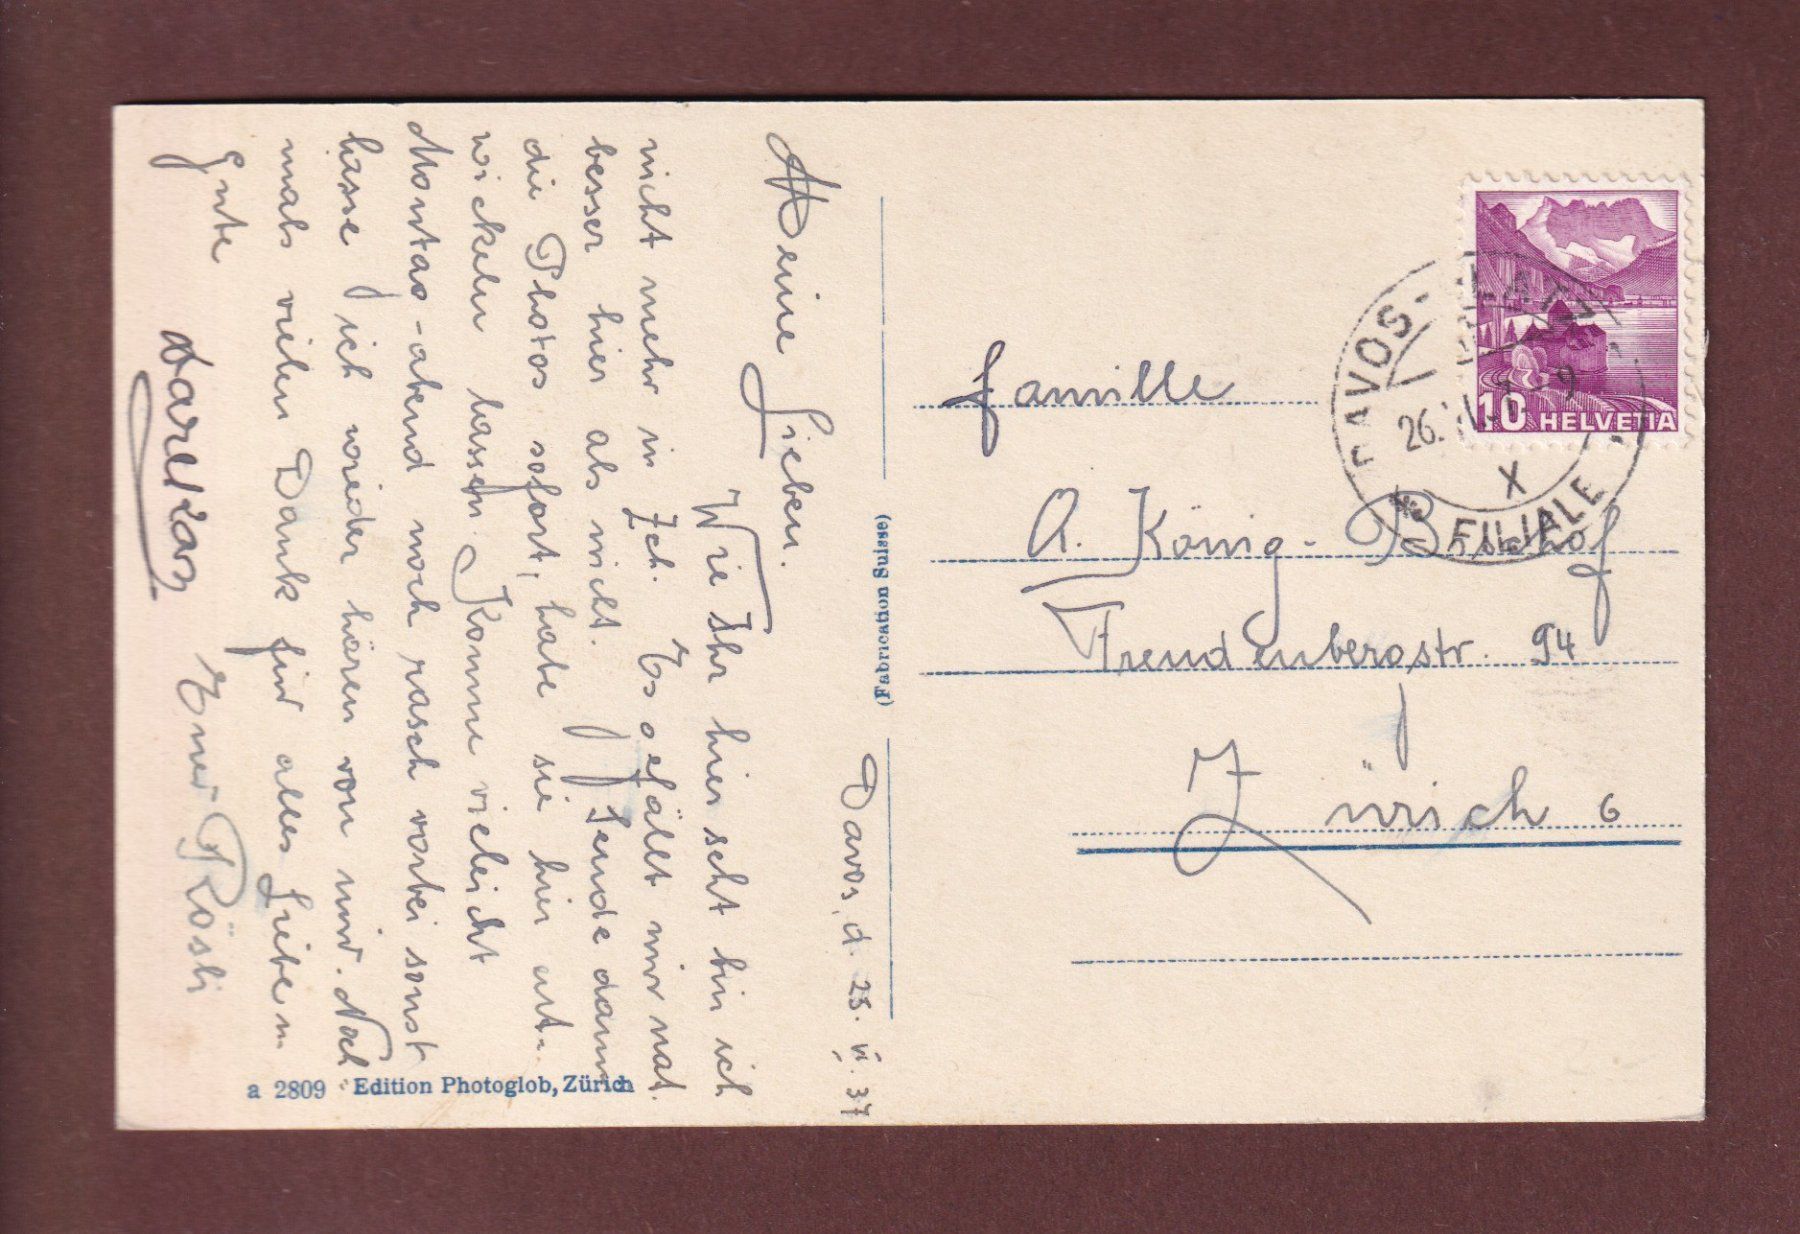 Davos, d. 25. VI. 37
Meine Lieben.
Wie Ihr hier seht bin ich
nicht mehr in Zch. Es gefällt mir nat.
besser hier als nicht. Sende dann
die Photos sofort, habe sie hier ent-
wickeln lassen. Komme vieleicht
Montag-abend noch rasch vorbei sonst
lasse ich wieder hören von mir. Noch-
mals vielen Dank für alles Liebe u.
Gute
Euer Rösli
a 2809 Edition Photoglob, Zürich
(Fabrication Suisse)
Familie
A. König-Bischof
Freudenbergstr. 94
Zürich 6
DAVOS-PLATZ
26.
X
* FILIALE
10 HELVETIA